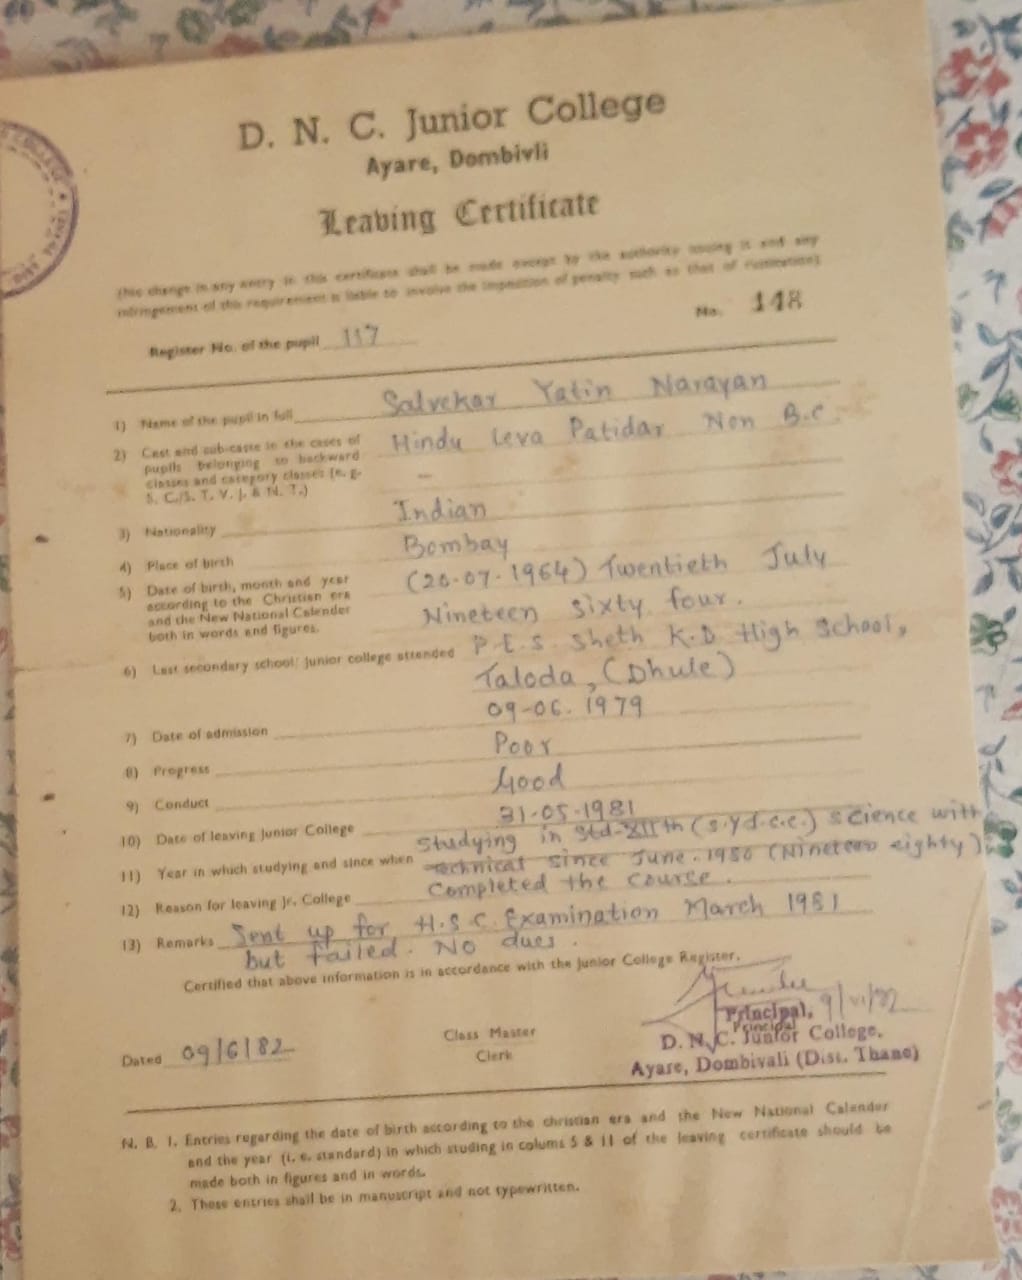 D. N. C. Junior College
Ayare, Dombivli
Leaving Certificate
(No change in any entry in this certificate shall be made except by the authority issuing it and any
infringement of this requirement is liable to involve the imposition of penalty such as that of rustication)
Register No. of the pupil 117
No. 148
1) Name of the pupil in full Salvekar Yatin Narayan
2) Cast and sub-caste in the cases of pupils belonging to backward classes and category classes (e. g. S. C./S. T. V. J. & N. T.) Hindu Leva Patidar Non B.C. –
3) Nationality Indian
4) Place of birth Bombay
5) Date of birth, month and year according to the Christian era and the New National Calender both in words and figures. (20-07-1964) Twentieth July Nineteen sixty four.
6) Last secondary school/ junior college attended P.E.S. Sheth K.D High School, Taloda, (Dhule)
7) Date of admission 09-06.1979
8) Progress Poor
9) Conduct Good
10) Date of leaving Junior College 31-05-1981
11) Year in which studying and since when Studying in Std-XIIth (S.Y.J.C.C.) Science with technical since June.1980 (Nineteen eighty)
12) Reason for leaving Jr. College Completed the course.
13) Remarks Sent up for H.S.C. Examination March 1981
but failed. No dues.
Certified that above information is in accordance with the Junior College Register.
9/VI/82
Principal,
Principal
D. N. C. Junior College.
Ayare, Dombivali (Dist. Thane)
Dated 09/6/82
Class Master
Clerk
N. B. 1. Entries regarding the date of birth according to the christian era and the New National Calender
and the year (i. e. standard) in which studing in colums 5 & 11 of the leaving certificate should be
made both in figures and in words.
2. These entries shall be in manuscript and not typewritten.